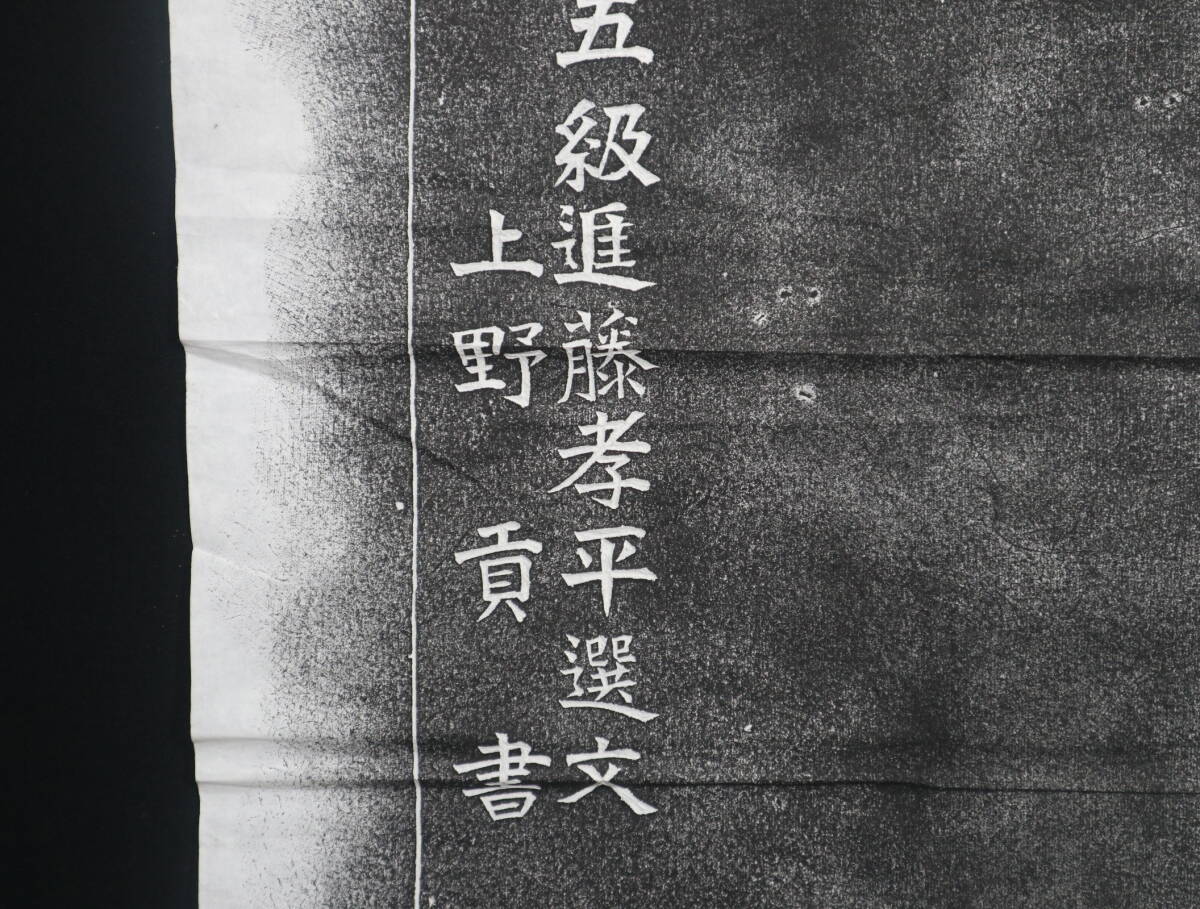 五級進藤孝平選文
上野貢書